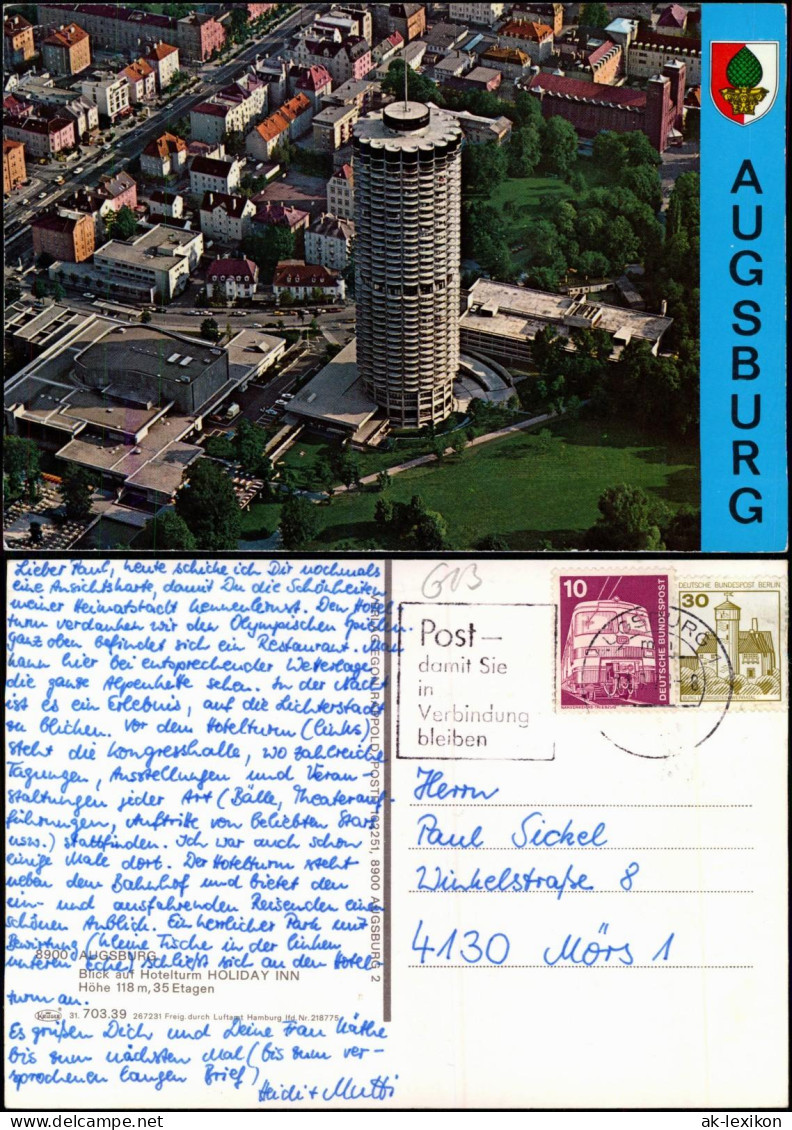 AUGSBURG
Lieber Paul, heute schicke ich Dir nochmals
eine Ansichtskarte, damit Du die Schönheiten
meiner Heimatstadt kennenlernst. Den Hotel-
turm verdanken wir den Olympischen Spielen.
ganz oben befindet sich ein Restaurant. Man
kann hier bei entsprechender Wetterlage
die ganze Alpenkette sehen. In der Nacht
ist es ein Erlebnis, auf die Lichterstadt
zu blicken. Vor dem Hotelturm (links)
steht die Kongresshalle, wo zahlreiche
Tagungen, Ausstellungen und Veran-
staltungen jeder Art (Bälle, Theaterauf-
führungen, Auftritte von beliebten Stars
usw.) stattfinden. Ich war auch schon
einige Male dort. Der Hotelturm steht
neben dem Bahnhof und bietet den
ein- und ausfahrenden Reisenden einen
schönen Anblick. Ein herrlicher Park mit
Bewirtung (kleine Tische in der linken
unteren Ecke) schließt sich an den Hotel-
turm an.
8900 AUGSBURG
Blick auf Hotelturm HOLIDAY INN
Höhe 118 m, 35 Etagen
31. 703.39 267231 Freig. durch Luftamt Hamburg lfd. Nr. 218775
Es grüßen Dich und Deine Frau Käthe
bis zum nächsten Mal (bis zum ver-
sprochenen langen Brief)
Heidi + Mutti
POSTF. 102251, 8900 AUGSBURG 2
G13
Post-
damit Sie
in
Verbindung
bleiben
10
DEUTSCHE BUNDESPOST
DEUTSCHE BUNDESPOST BERLIN
30
AUGSBURG
Herrn
Paul Sickel
Winkelstraße 8
4130 Mörs 1
ak-lexikon.com